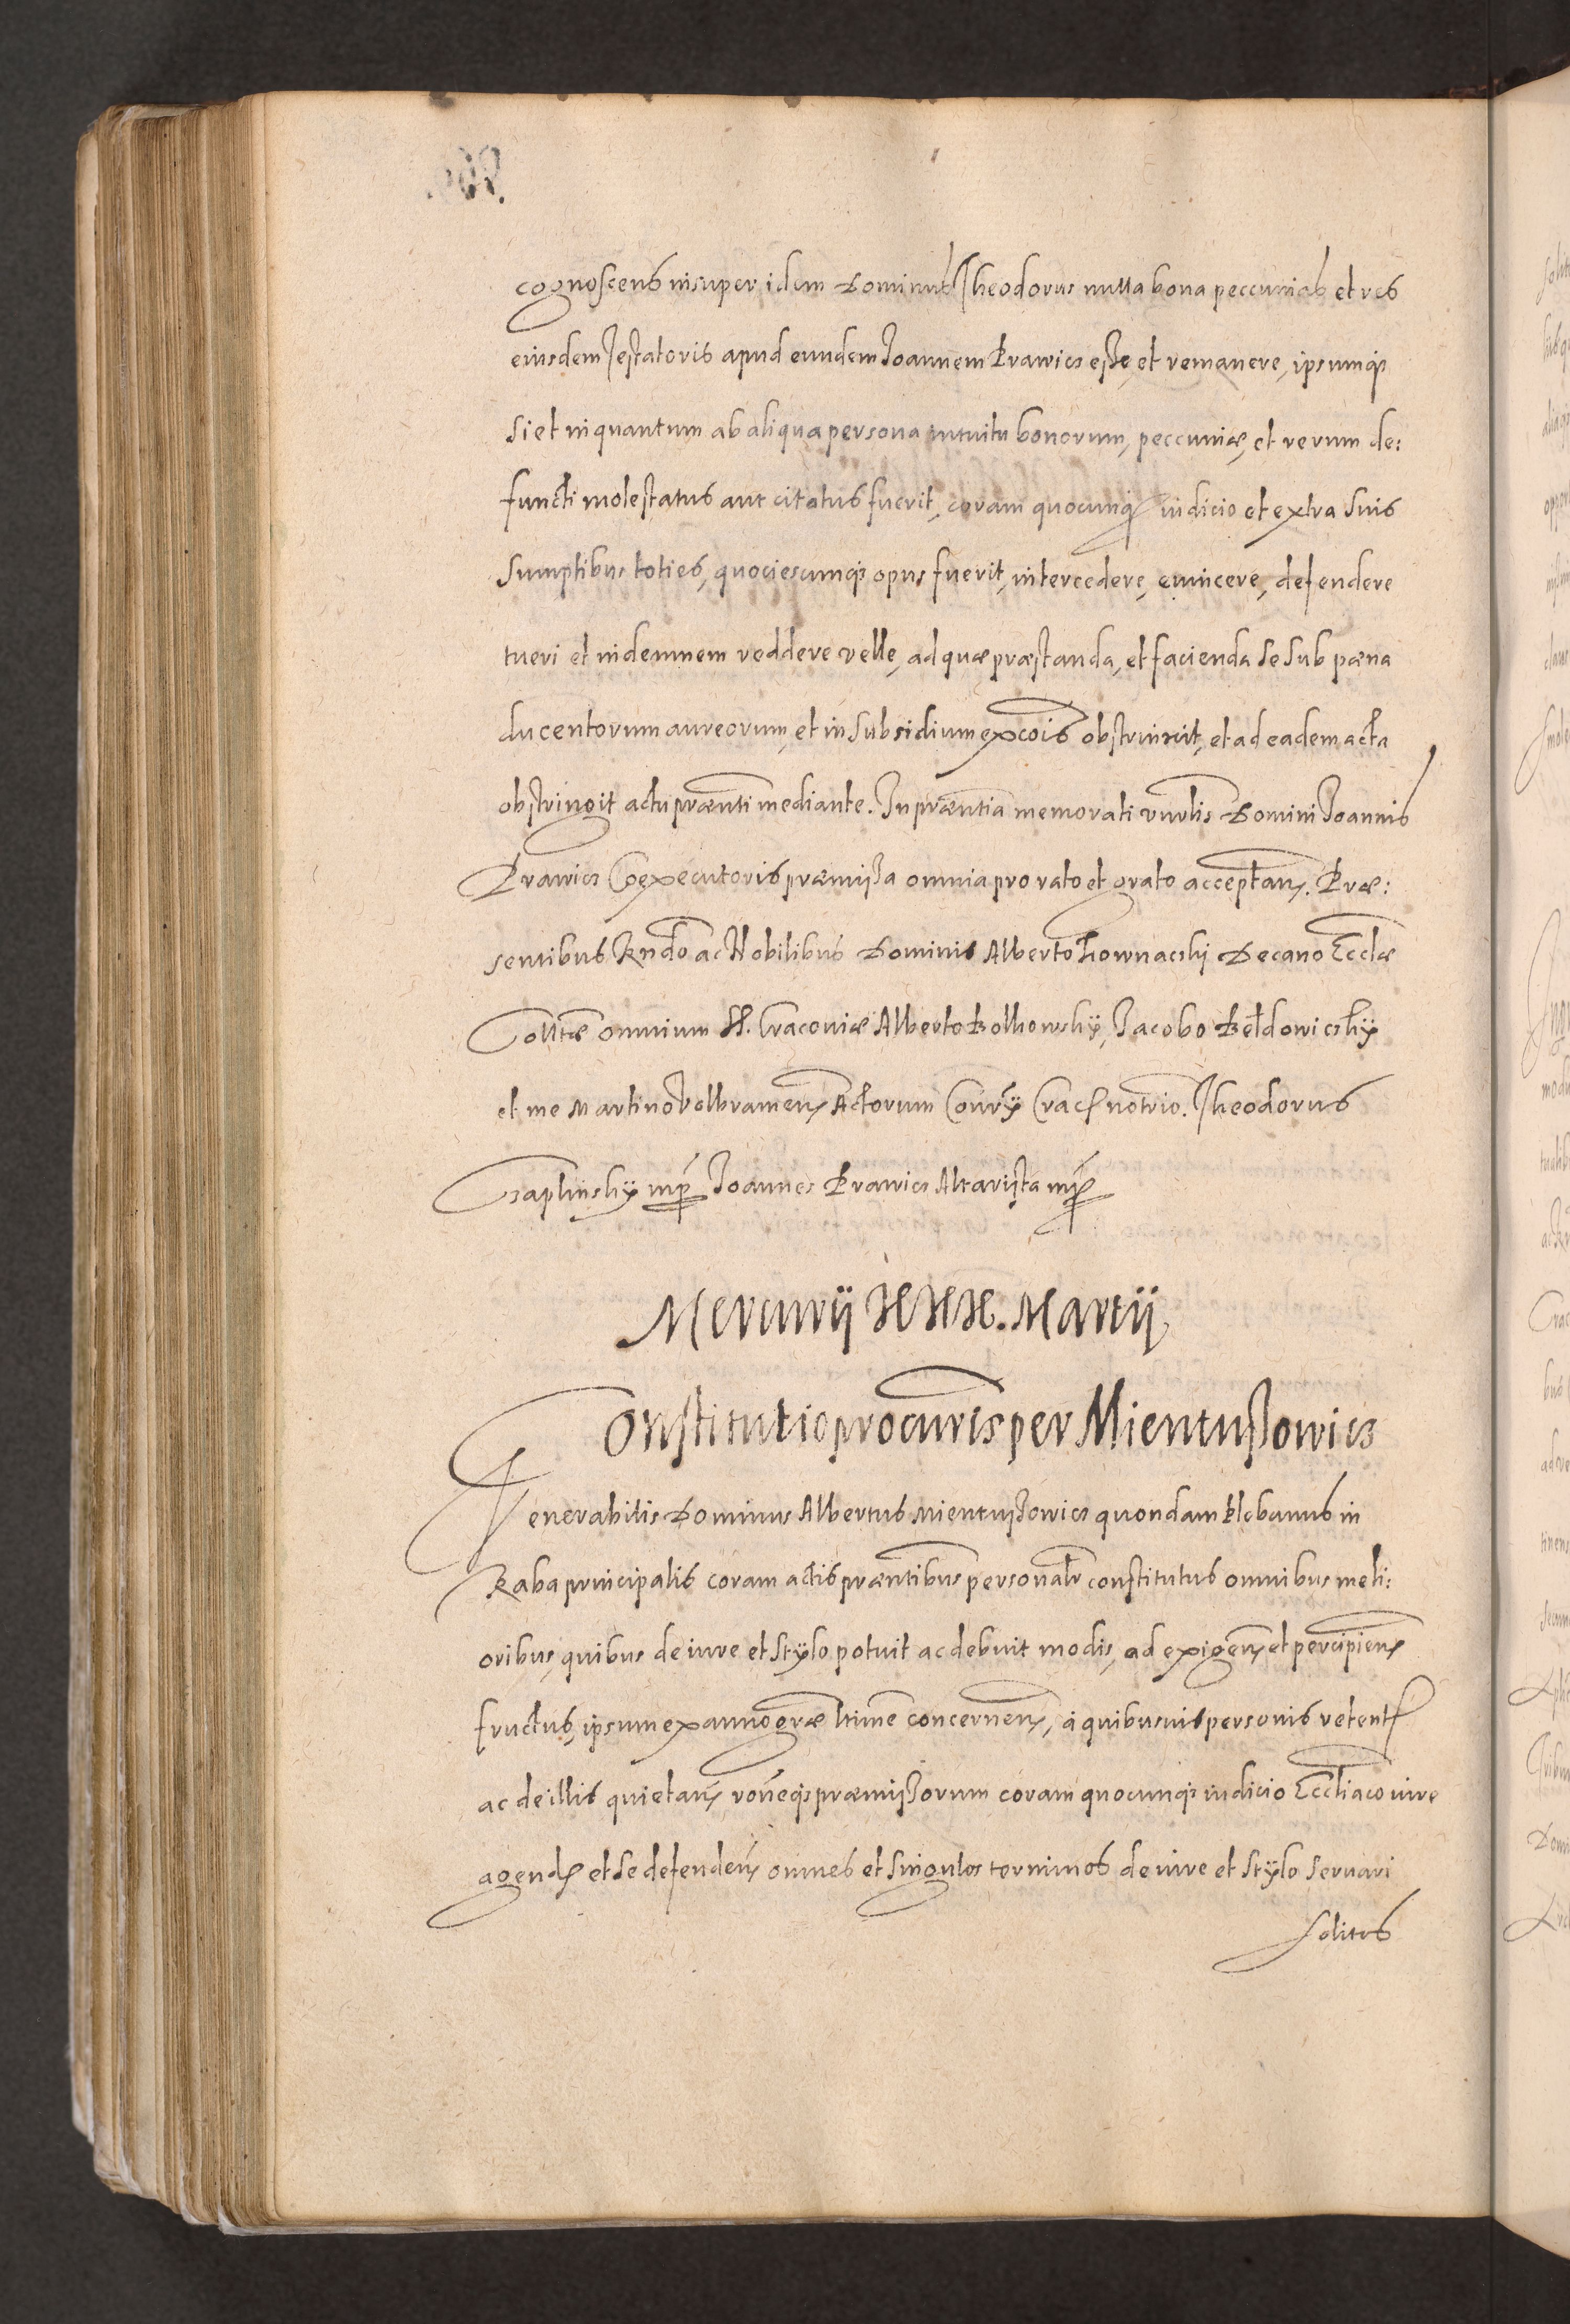 cognoscens insuper idem Dominus Theodorus nulla bona peccunias et res
eiusdem Testatoris apud eundem Joannem Prawicz esse, et remanere, ipsumq;
si et inquantum ab aliqua persona intuitu bonorum, peccuniæ, et rerum de:
functi molestatus aut citatus fuerit, coram quocunq; iudicio et extra suis
sumptibus toties, quociescunq; opus fuerit, intercedere, euincere, defendere
tueri et indemnem reddere velle, ad quæ præstanda, et facienda se sub pæna
ducentorum aureorum, et in subsidium excois obstrinxit, et ad eadem acta
obstringit actu præsenti mediante. In præntia memorati vnrlis Domini Joannis
Prawicz Coexecutoris præmissa omnia pro rato et grato acceptan. Præ:
sentibus Rndo ac Nobilibus Dominis Alberto Decano Ecclæ
Colltæ omnium SS. Cracouiæ Alberto Bolkowsky, Jacobo Bełdowiczky
et me Martino Volbramen Actorum Conry Crac notrio. Theodorus
Czaplinsky mp Joannes Prawicz Altarista mp
Mercurij XXX. Martij
Constitutio procuris per Mientussowicz
Venerabilis Dominus Albertus Mientussowicz quondam Plebanus in
Raba principalis coram actis præntibus personalr constitutus omnibus meli:
oribus, quibus de iure et stylo potuit ac debuit modis, ad exigen et percipien
fructus, ipsum ex anno græ ltime concernen, a quibusuis personis retent
ac de illis quietan, roneq; præmissorum coram quocunq; iudicio Eccliaco iure
agend et se defenden omnes et singulos terminos de iure et stylo seruari
solitos